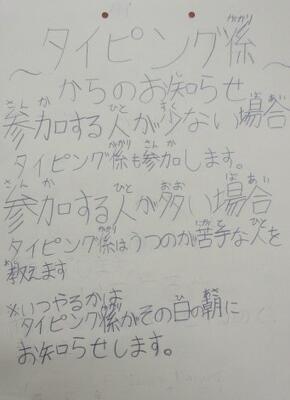 〜タイピング係〜
からのお知らせ
参加する人が少ない場合
タイピング係も参加します。
参加する人が多い場合
タイピング係はうつのが苦手な人を
教えます
※いつやるかは
タイピング係がその日の朝に
お知らせします。